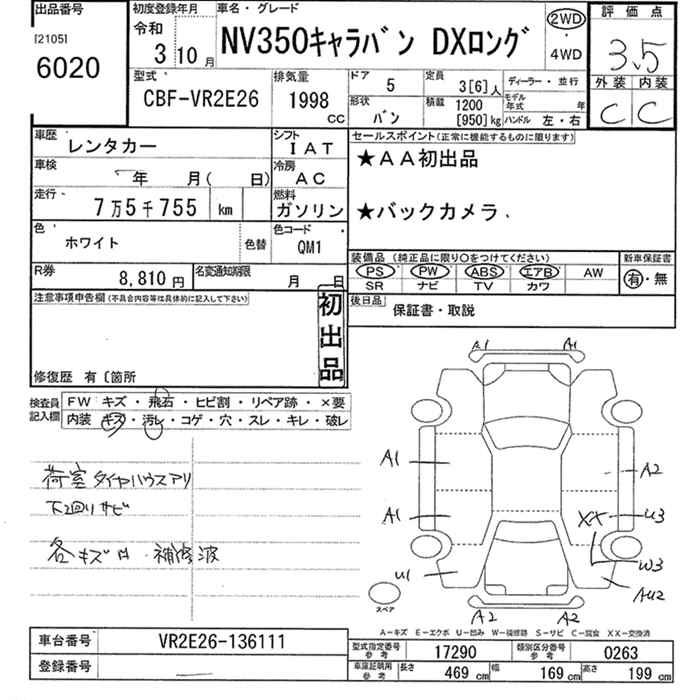 出品番号
[2105]
6020
初度登録年月
令和
3年10月
車名・グレード
NV350キャラバン DXロング
2WD
・
4WD
評価点
3.5
外装 内装
C C
型式
CBF-VR2E26
排気量
1998
CC
ドア
5
定員
3[6]人
ディーラー・並行
形状
バン
積載
1200
[950]kg
モデル年式 年
ハンドル 左・右
車歴
レンタカー
シフト
IAT
車検
年 月( 日)
冷房
AC
走行
7万5千755 km
燃料
ガソリン
色
ホワイト
色替
色コード
QM1
R券
8,810円
名変通知期限
月 日
セールスポイント(正常に機能するものに限ります)
★AA初出品
★バックカメラ
装備品 (純正品に限り○をつけてください)
PS PW ABS エアB AW
SR ナビ TV カワ
新車保証書
有・無
後日品
保証書・取説
注意事項申告欄(不具合内容等は具体的に記入して下さい)
初出品
修復歴 有〔箇所
検査員記入欄
FW キズ・飛石・ヒビ割・リペア跡・×要
内装 キズ・汚レ・コゲ・穴・スレ・キレ・破レ
荷室タイヤハウスアリ
下廻りサビ
各キズ凹・補修波
A1 A1
A1 A2
A1 XX U3
U1 W3
AU2
A2 A2
スペア
A-キズ E-エクボ U-凹み W-補修跡 S-サビ C-腐食 XX-交換済
車台番号
VR2E26-136111
登録番号
型式指定番号 参考
17290
類別区分番号 参考
0263
車庫証明用 参考
長さ 469cm 幅 169cm 高さ 199cm